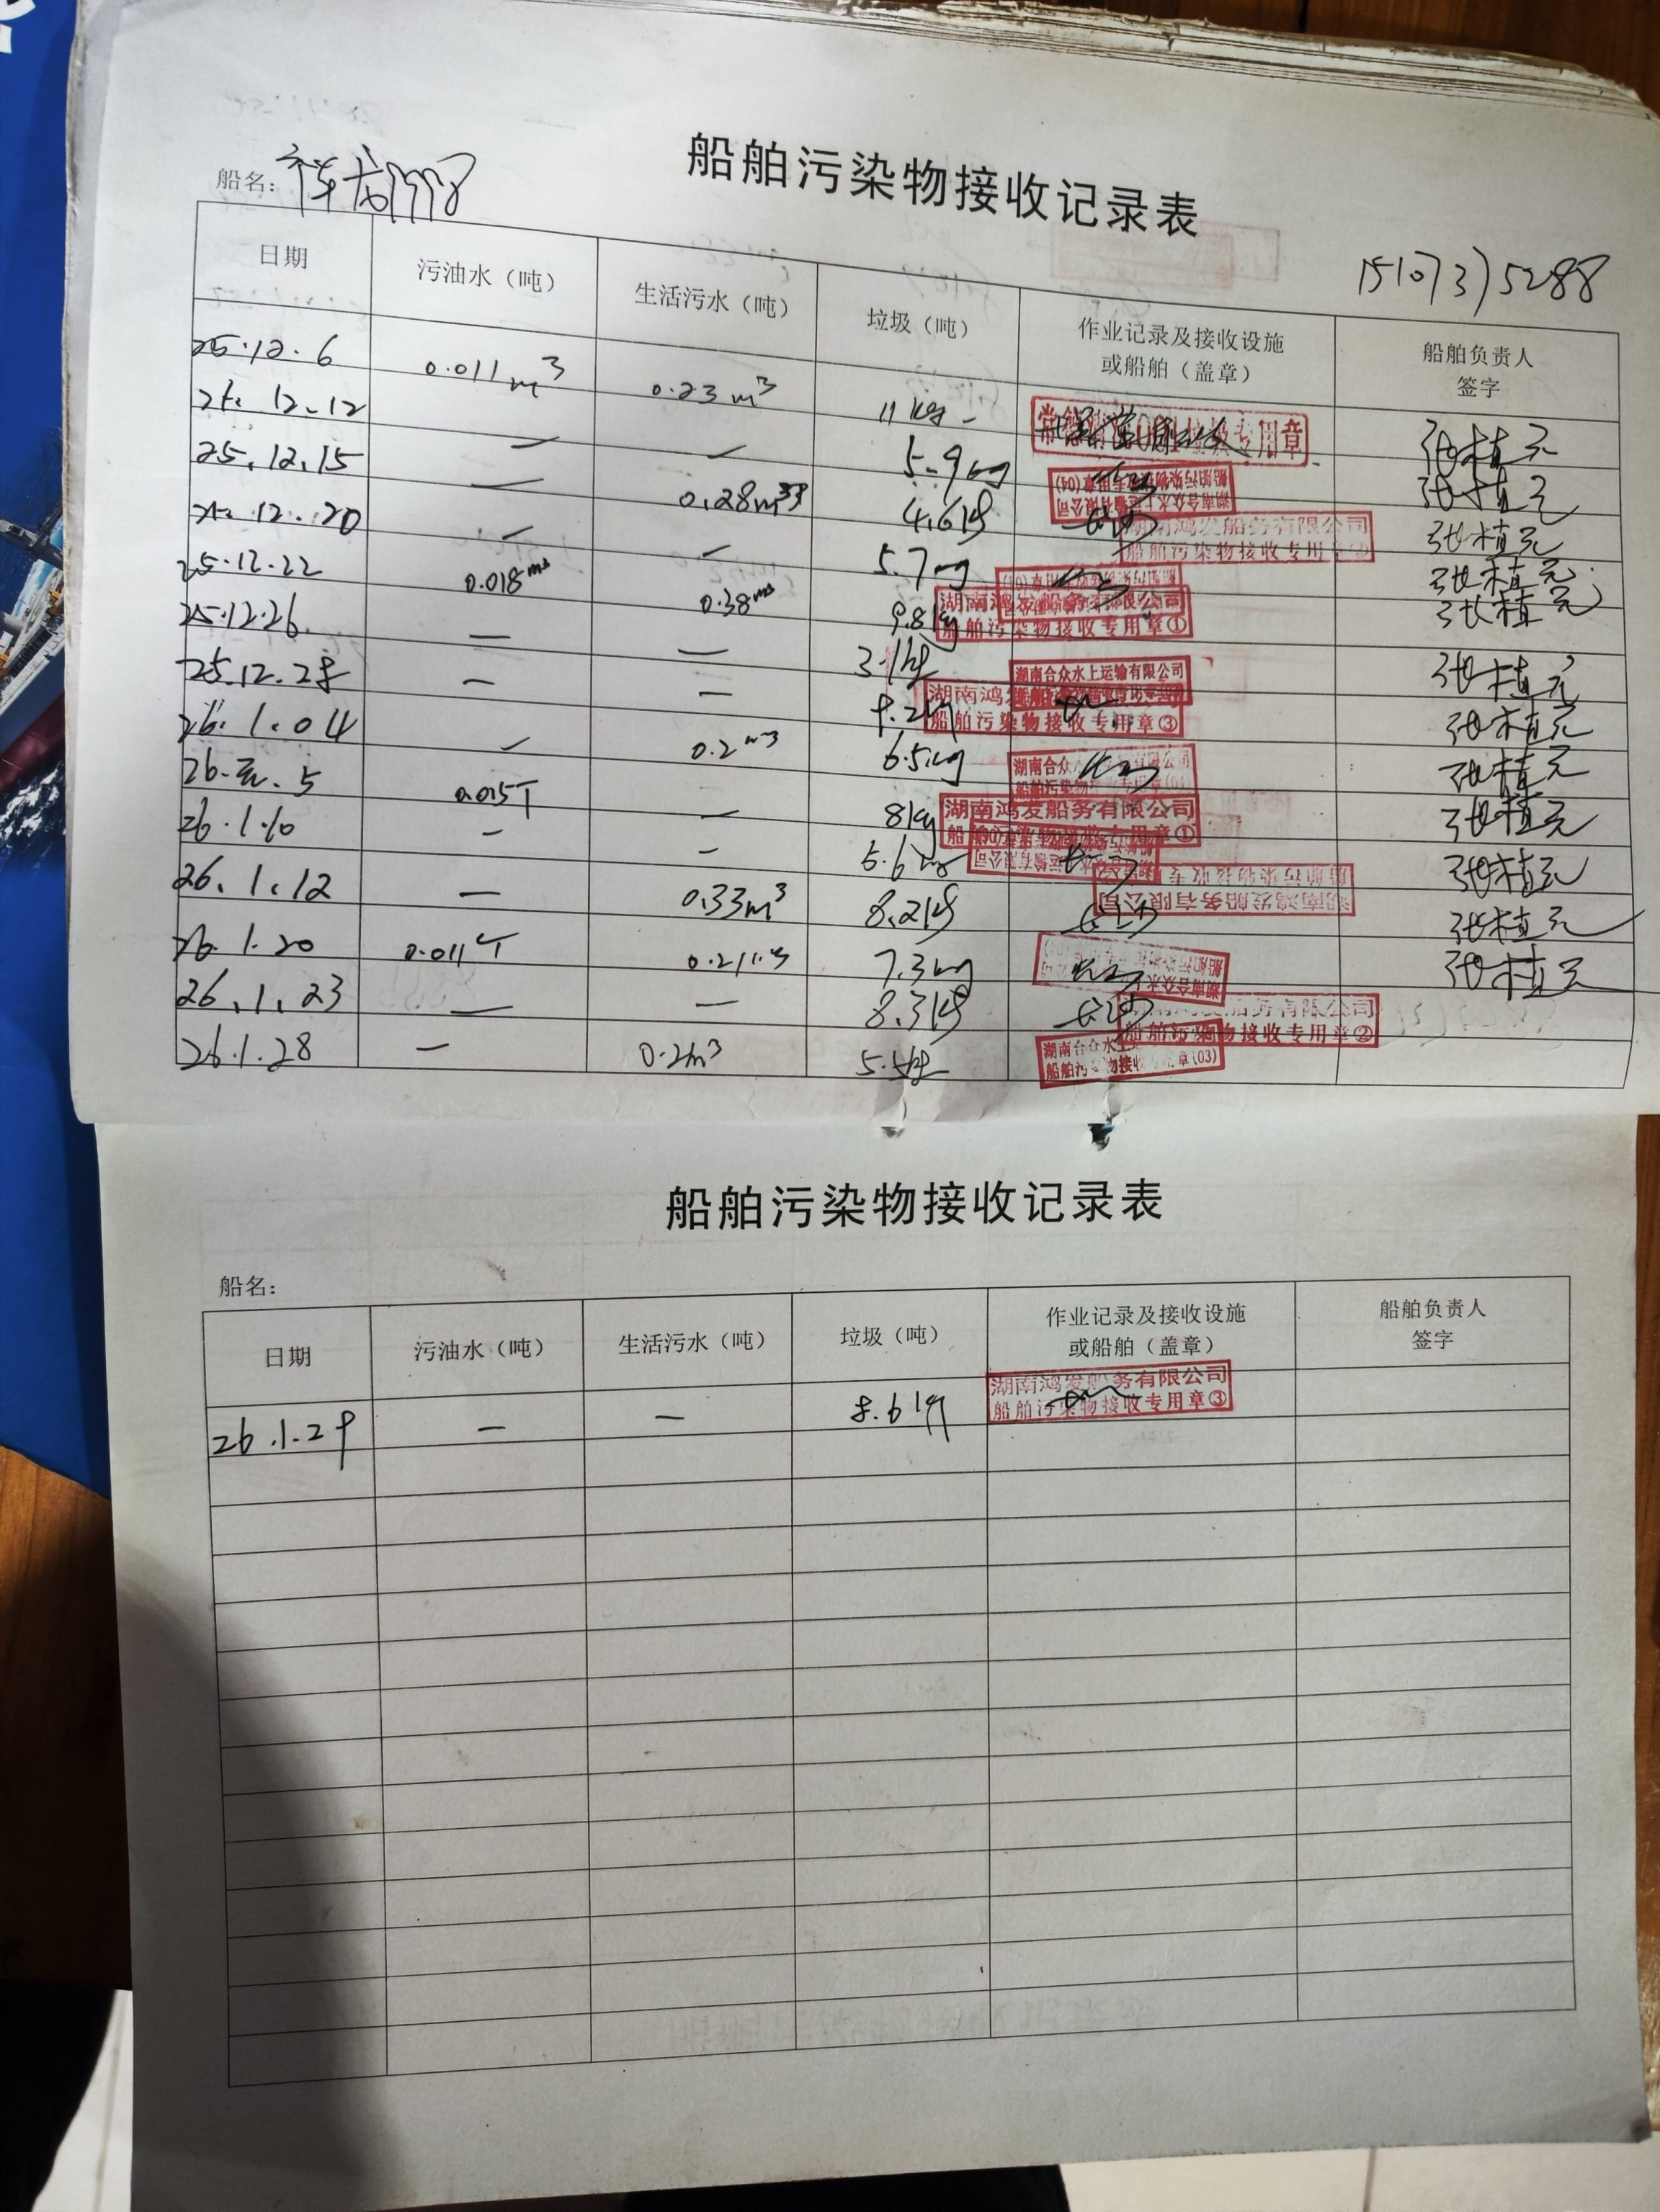 船舶污染物接收记录表
船名：祥龙1998
15107375288
日期 污油水（吨） 生活污水（吨） 垃圾（吨） 作业记录及接收设施或船舶（盖章） 船舶负责人签字
25.12.6 0.011m³ 0.23m³ 11kg 张植元
25.12.12 — — 5.9kg 张植元
25.12.15 — 0.28m³ 4.6kg 湖南鸿发船务有限公司 船舶污染物接收专用章② 张植元
25.12.20 — — 5.7kg 张植元
25.12.22 0.018m³ 0.38m³ 9.8kg 湖南鸿发船务有限公司 船舶污染物接收专用章① 张植元
25.12.26 — — 3.1kg 湖南合众水上运输有限公司 张植元
25.12.28 — — 8.2kg 湖南鸿发 船舶污染物接收专用章③ 张植元
26.1.04 — 0.2m³ 6.5kg 湖南合众 有限公司 张植元
26.元.5 0.015T — 8kg 湖南鸿发船务有限公司 张植元
26.1.10 — — 5.6kg 张植元
26.1.12 — 0.33m³ 8.2kg 湖南鸿发船务有限公司 张植元
26.1.20 0.011T 0.21m³ 7.3kg 湖南合众水 张植元
26.1.23 — — 8.3kg 湖南鸿发船务有限公司 船舶污染物接收专用章②
26.1.28 — 0.2m³ 湖南合众水上 船舶污染物接收专用章(03)
船舶污染物接收记录表
船名：
日期 污油水（吨） 生活污水（吨） 垃圾（吨） 作业记录及接收设施或船舶（盖章） 船舶负责人签字
26.1.29 — — 8.6kg 湖南鸿发船务有限公司 船舶污染物接收专用章③